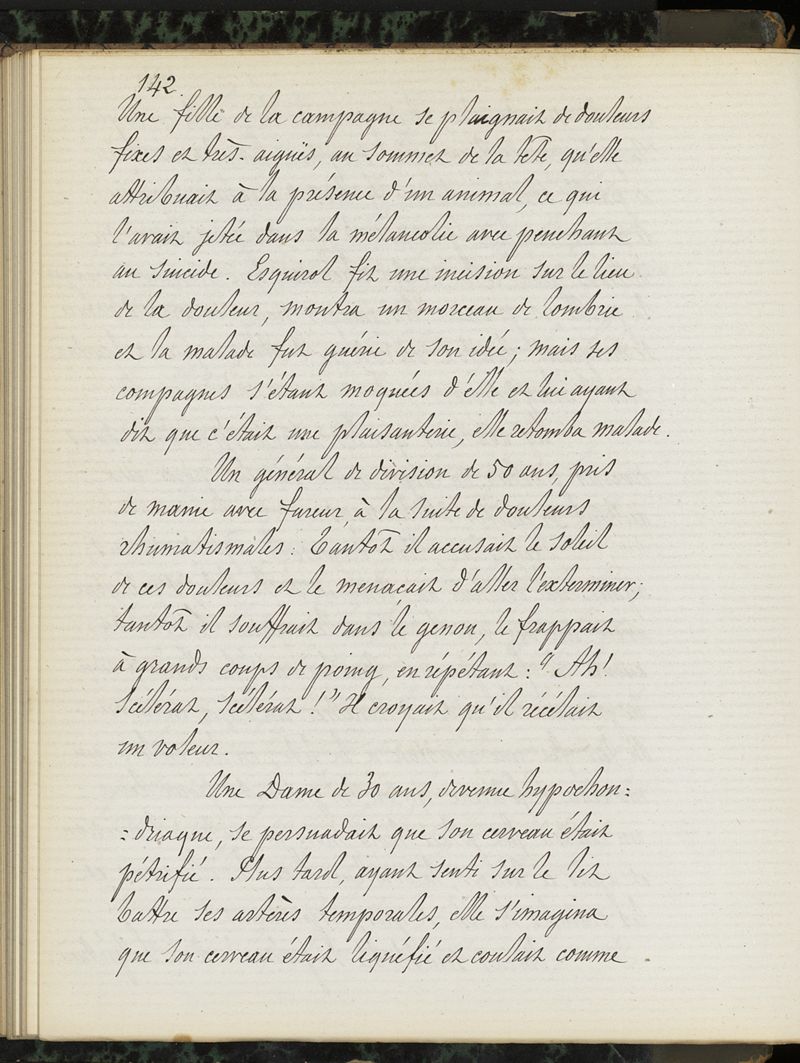 142.
Une fille de la campagne se plaignait de douleurs
fixes et très-aiguës, au sommet de la tête, qu'elle
attribuait à la présence d'un animal, ce qui
l'avait jetée dans la mélancolie avec penchant
au suicide. Esquirol fit une incision sur le lieu
de la douleur, montra un morceau de lombric
et la malade fut guérie de son idée; mais ses
compagnes s'étant moquées d'elle et lui ayant
dit que c'était une plaisanterie, elle retomba malade.
Un général de division de 50 ans, pris
de manie avec fureur, à la suite de douleurs
rhumatismales: Tantôt il accusait le soleil
de ces douleurs et le menaçait d'aller l'exterminer;
tantôt il souffrait dans le genou, le frappait
à grands coups de poing, en répétant: "Ah!
Scélérat, scélérat!" Il croyait qu'il récélait
un voleur.
Une Dame de 30 ans, devenue hypochon=
=driaque, se persuadait que son cerveau était
pétrifié. Plus tard, ayant senti sur le lit
battre ses artères temporales, elle s'imagina
que son cerveau était liquéfié et coulait comme